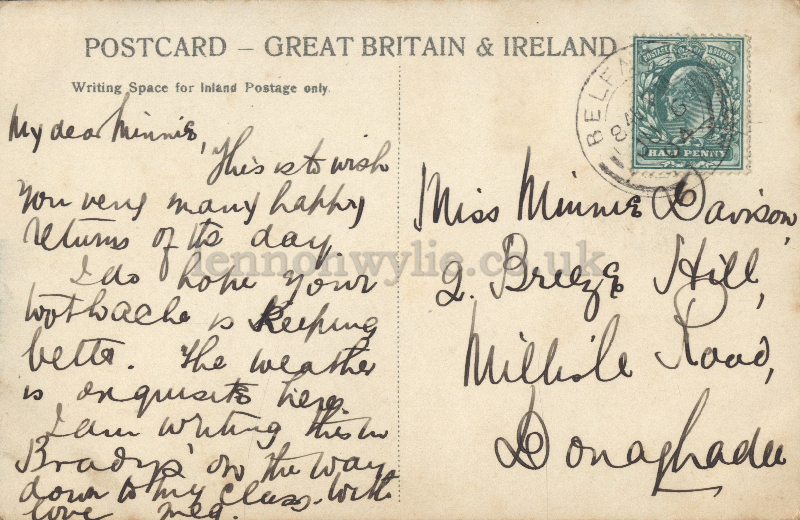 POSTCARD – GREAT BRITAIN & IRELAND
Writing Space for Inland Postage only.
My dear Minnie,
This is to wish
you very many happy
returns of the day.
I do hope your
toothache is keeping
better. The weather
is exquisite here
I am writing this in
Bradys' on the way
down to my class. with
love Meg.
BELFA
HALF PENNY
Miss Minnie Davison,
2. Breeze Hill,
Millisle Road,
Donaghadee
lennonwylie.co.uk